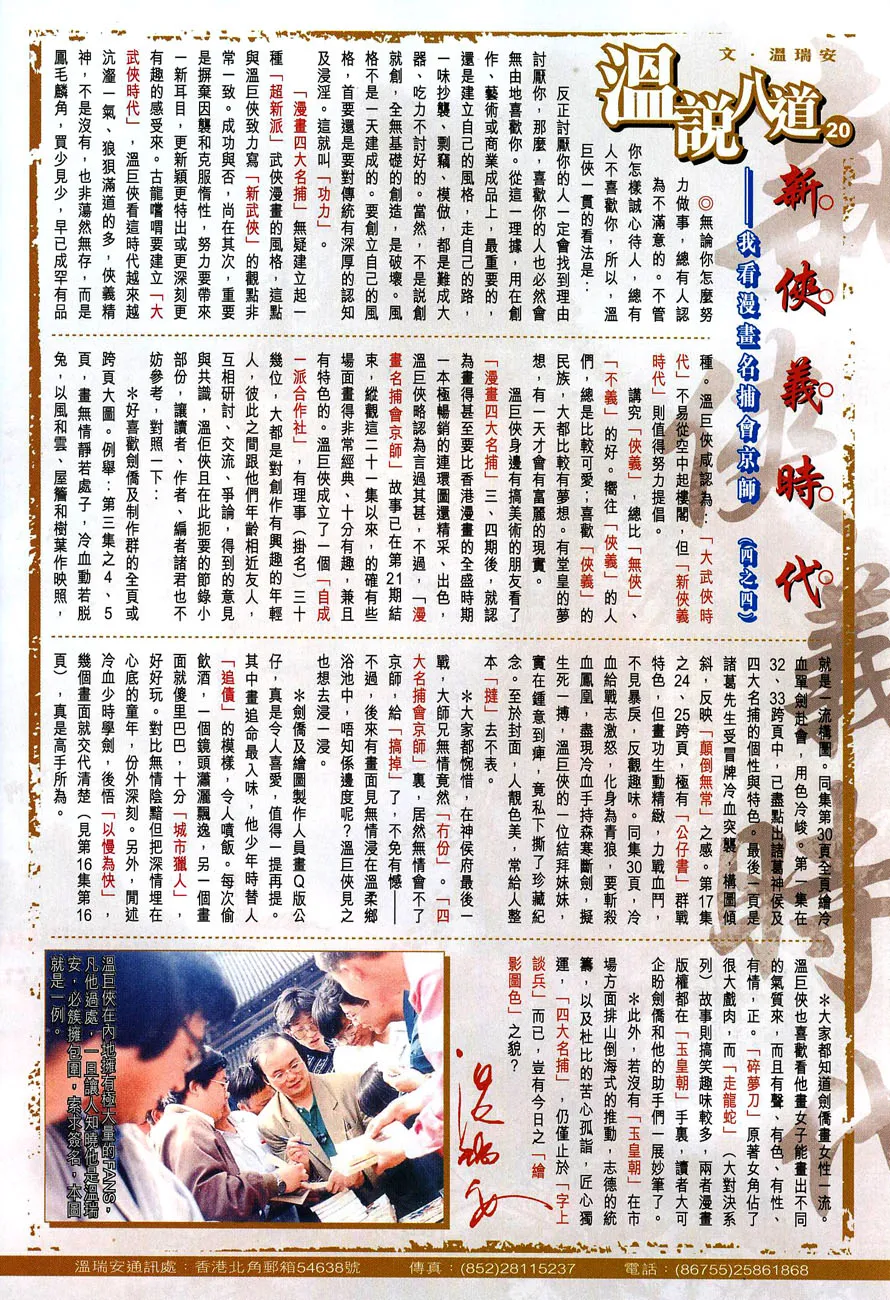 文・溫瑞安
溫說八道20
新俠義時代
——我看漫畫名捕會京師（四之四）
◎無論你怎麼努
力做事，總有人認
為不滿意的。不管
你怎樣誠心待人，總有
人不喜歡你，所以，溫
巨俠一貫的看法是：
反正討厭你的人一定會找到理由
討厭你，那麼，喜歡你的人也必然會
無由地喜歡你。從這一理據，用在創
作、藝術或商業成品上，最重要的，
還是建立自己的風格，走自己的路，
一味抄襲、剽竊、模倣，都是難成大
器、吃力不討好的。當然，不是説創
就創，全無基礎的創造，是破壞。風
格不是一天建成的。要創立自己的風
格，首要還是要對傳統有深厚的認知
及浸淫。這就叫「功力」。
「漫畫四大名捕」無疑建立起一
種「超新派」武俠漫畫的風格，這點
與溫巨俠致力寫「新武俠」的觀點非
常一致。成功與否，尚在其次，重要
是摒棄因襲和克服惰性，努力要帶來
一新耳目，更新穎更特出或更深刻更
有趣的感受來。古龍嚐謂要建立「大
武俠時代」，溫巨俠看這時代越來越
沆瀣一氣、狼狽滿道的多，俠義精
神，不是沒有，也非蕩然無存，而是
鳳毛麟角，買少見少，早已成罕有品
種。溫巨俠咸認為：「大武俠時
代」不易從空中起樓閣，但「新俠義
時代」則值得努力提倡。
講究「俠義」，總比「無俠」、
「不義」的好。嚮往「俠義」的人
們，總是比較可愛；喜歡「俠義」的
民族，大都比較有夢想。有堂皇的夢
想，有一天才會有富麗的現實。
溫巨俠身邊有搞美術的朋友看了
「漫畫四大名捕」三、四期後，就認
為畫得甚至要比香港漫畫的全盛時期
一本極暢銷的連環圖還精采、出色，
溫巨俠略認為言過其甚，不過，「漫
畫名捕會京師」故事已在第21期結
束，縱觀這二十一集以來，的確有些
場面畫得非常經典、十分有趣，兼且
有特色的。溫巨俠成立了一個「自成
一派合作社」，有理事（掛名）三十
幾位，大都是對創作有興趣的年輕
人，彼此之間跟他們年齡相近友人，
互相研討、交流、爭論，得到的意見
與共識，溫佢俠且在此扼要的節錄小
部份，讓讀者、作者、編者諸君也不
妨參考，對照一下：
＊好喜歡劍僑及制作群的全頁或
跨頁大圖。例舉：第三集之4、5
頁，畫無情靜若處子，冷血動若脱
兔，以風和雲、屋簷和樹葉作映照，
就是一流構圖。同集第30頁全頁繪冷
血單劍赴會，用色冷峻。第一集在
32、33跨頁中，已盡點出諸葛神侯及
四大名捕的個性與特色。最後一頁是
諸葛先生受冒牌冷血突襲，構圖傾
斜，反映「顛倒無常」之感。第17集
之24、25跨頁，極有「公仔書」群戰
特色，但畫功生動精緻，力戰血鬥，
不見暴戾，反觀趣味。同集30頁，冷
血給戰志激怒，化身為青狼，要斬殺
血鳳凰，盡現冷血手持森寒斷劍，擬
生死一搏，溫巨俠的一位結拜妹妹，
實在鍾意到痺，竟私下撕了珍藏紀
念。至於封面，人靚色美，常給人整
本「撻」去不表。
＊大家都惋惜，在神侯府最後一
戰，大師兄無情竟然「冇份」。「四
大名捕會京師」裏，居然無情會不了
京師，給「搞掉」了，不免有憾——
不過，後來有畫面見無情浸在溫柔鄉
浴池中，唔知係邊度呢？溫巨俠見之
也想去浸一浸。
＊劍僑及繪圖製作人員畫Q版公
仔，真是令人喜愛，值得一提再提。
其中畫追命最入味，他少年時替人
「追債」的模樣，令人噴飯。每次偷
飲酒，一個鏡頭瀟灑飄逸，另一個畫
面就傻里巴巴，十分「城市獵人」，
好好玩。對比無情陰黯但把深情埋在
心底的童年，份外深刻。另外，閒述
冷血少時學劍，後悟「以慢為快」，
幾個畫面就交代清楚（見第16集第16
頁），真是高手所為。
＊大家都知道劍僑畫女性一流。
溫巨俠也喜歡看他畫女子能畫出不同
的氣質來，而且有聲、有色、有性、
有情，正。「碎夢刀」原著女角佔了
很大戲肉，而「走龍蛇」（大對決系
列）故事則搞笑趣味較多，兩者漫畫
版權都在「玉皇朝」手裏，讀者大可
企盼劍僑和他的助手們一展妙筆了。
＊此外，若沒有「玉皇朝」在市
場方面排山倒海式的推動，志德的統
籌，以及杜比的苦心孤詣，匠心獨
運，「四大名捕」，仍僅止於「字上
談兵」而已，豈有今日之「繪
影圖色」之貌？
溫瑞安
溫巨俠在內地擁有極大量的FANS，
凡他過處，一旦讓人知曉他是溫瑞
安，必簇擁包圍，索求簽名，本圖
就是一例。
溫瑞安通訊處：香港北角郵箱54638號 傳真：(852)28115237 電話：(86755)25861868